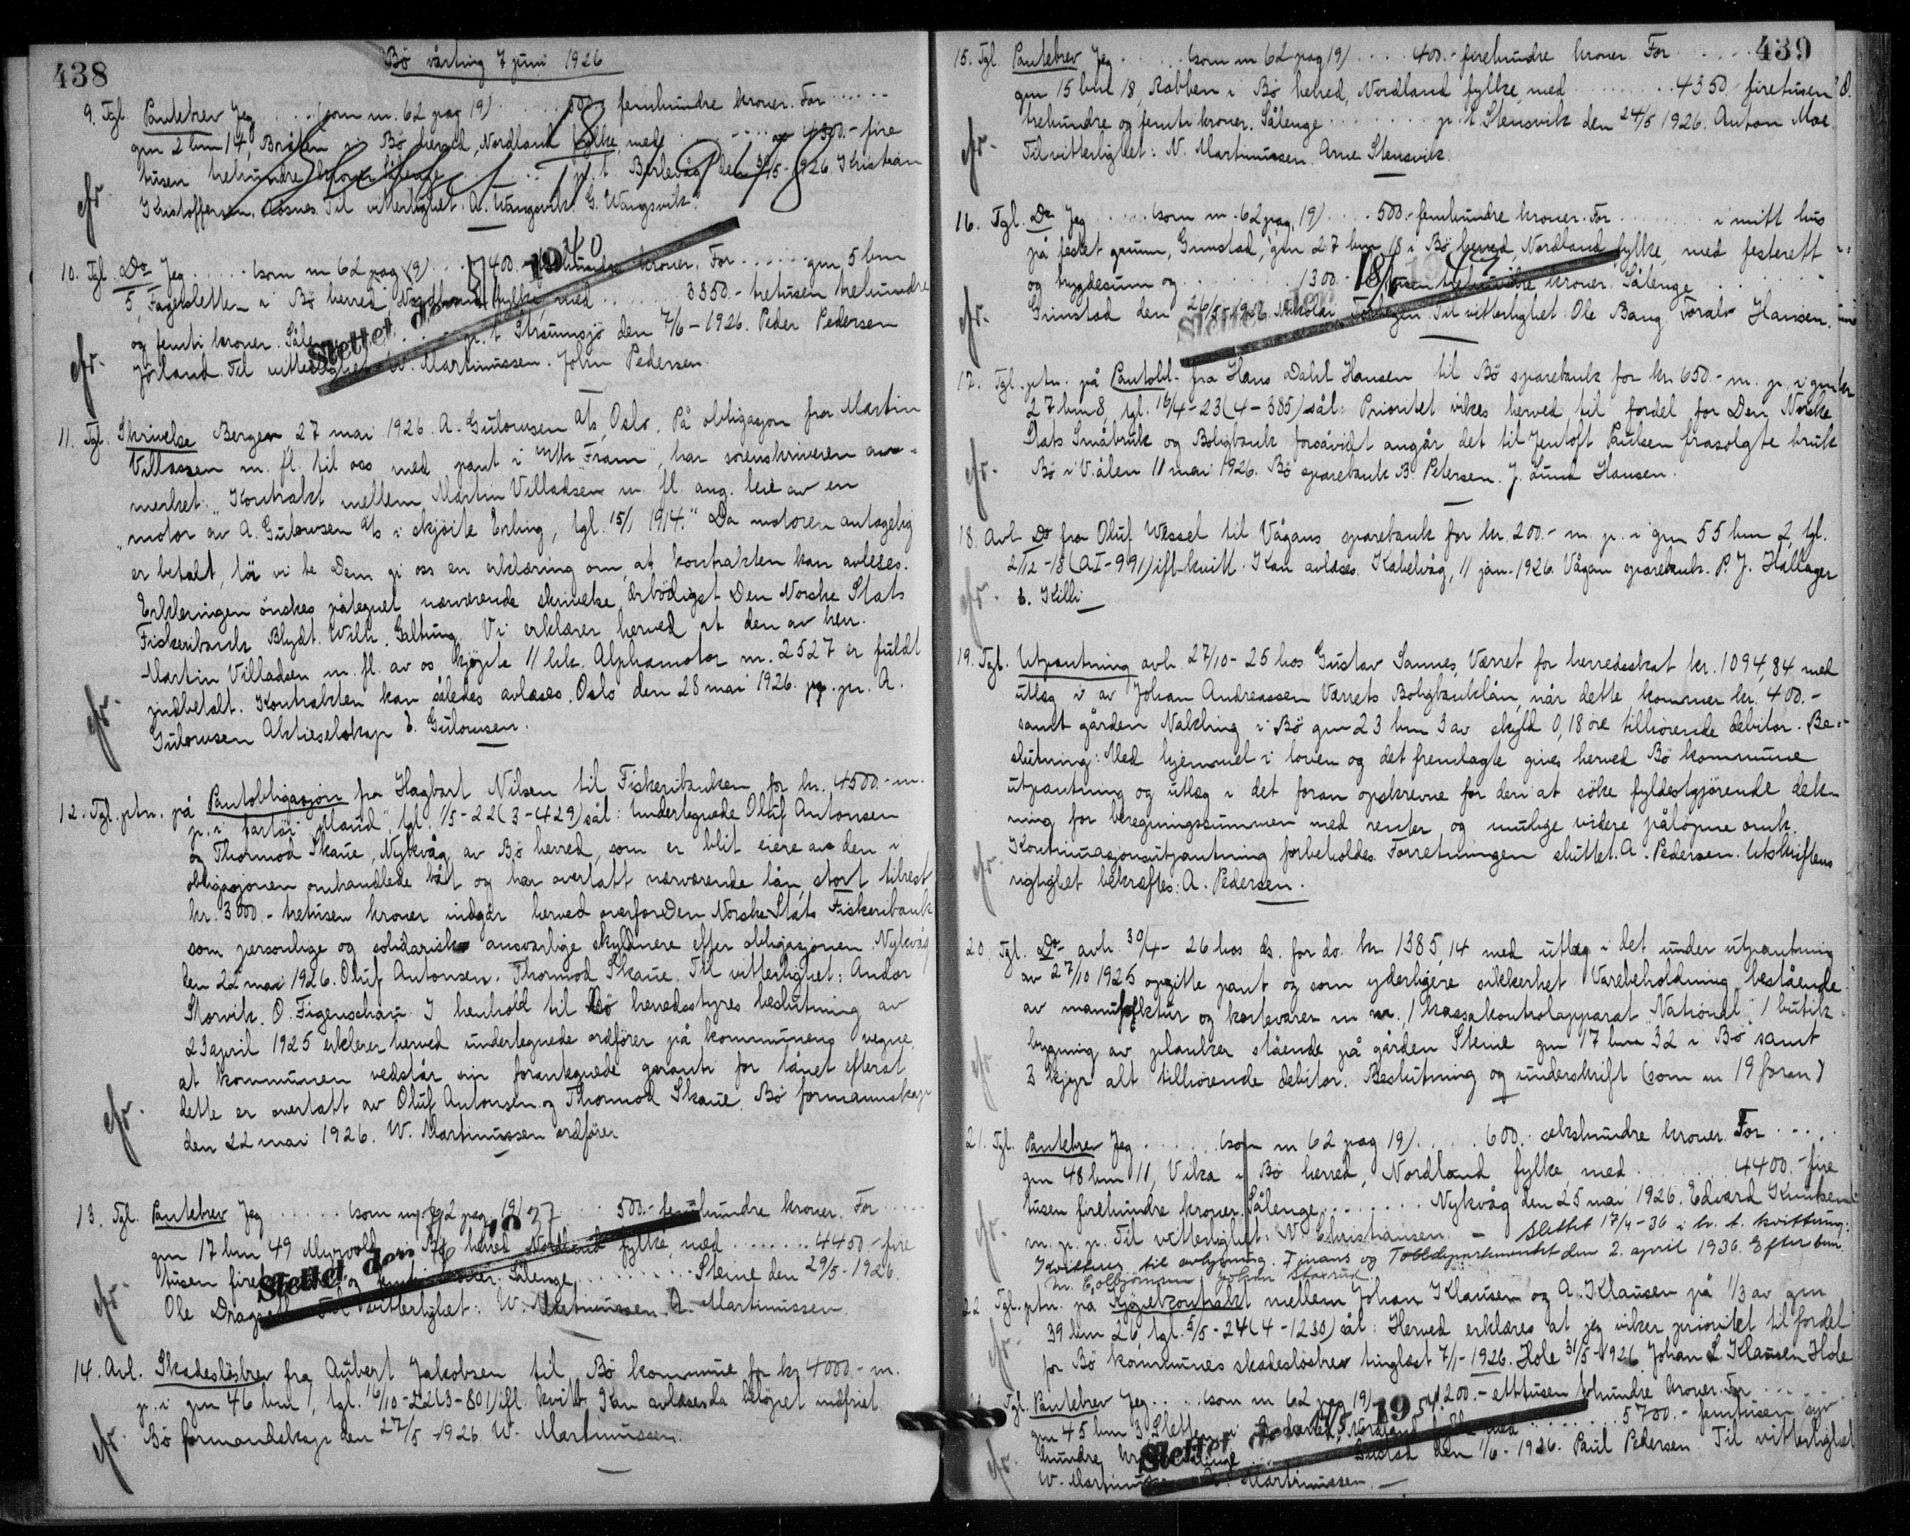 438
Bø vårting 7 juni 1926
9. Tgl. Pantebrev Jeg ..... (som nr. 62 pag 19) ..... 500.- femhundre kroner. For ......
gnr 2 bnr 14, Bråten i Bø herred, Nordland fylke, med ........ 4300.- fire
tusen trehundre kroner Sålenge ........ p. t. Barlevåg den 30/5-1926 Kristian
Kristoffersen Aasnes. Til vitterlighet. A. Wangsvik. G. Wangsvik.
cfr.
Slettet 18
10. Tgl. Do Jeg ..... (som nr 62 pag 19) .... 400.- firehundre kroner. For ...... gnr 5 bnr
5, Fagersletten i Bø herred, Nordland fylke, med ....... 3350.- tretusen trehundre
og femti kroner. Sålenge ..... p. t. Straumsjø den 7/6-1926. Peder Pedersen
Jørland. Til vitterlighet W. Martinussen. John Pedersen.
cfr.
Slettet den 1940
11. Tgl. Skrivelse Bergen 27 mai 1926. A. Gulowsen A/S, Oslo. På obligasjon fra Martin
Villassen m. fl. til oss med pant i M/k "Fram", har sorenskriveren an-
merket: "Kontrakt mellem Martin Villadsen m. fl. ang. leie av en
"motor av A. Gulowsen A/s i skjøite Erling, tgl. 15/1 1914." Da motoren antagelig
er betalt, tør vi be Dem gi oss en erklæring om, at kontrakten kan avleses.
Erkleringen ønskes påtegnet nærværende skrivelse. Ærbødigst Den Norske Stats
Fiskeribank Blydt. Wilh. Galtung. Vi erklærer herved at den av herr.
Martin Villadsen m. fl. av os kjøpte 11 hk. Alphamotor nr. 2527 er fuldt
indbetalt. Kontrakten kan således avlæses. Oslo den 28 mai 1926. pp. pr. A.
Gulowsen Aktieselskap E. Gulowsen.
cfr.
12. Tgl. ptn. på Pantobligasjon fra Hagbart Nilsen til Fiskeribanken for kr. 4500.- m.
p. i fartøi "Maud", tgl. 1/5-22 (3-429) sål: Undertegnede Oluf Antonsen
og Thormod Skaue, Nykvåg av Bø herred, som er blit eiere av den i
obligasjonen omhandlede båt og har overtatt nærværende lån, stort tilrest
kr. 3000.- tretusen kroner indgår herved overfor Den Norske Stats Fiskeribank
som personlige og solidarisk ansvarlige skyldnere efter obligasjonen. Nykvåg
den 22 mai 1926. Oluf Antonsen. Thormod Skaue. Til vitterlighet: Andor
Storvik. O. Figenschau. I henhold til Bø herredsstyres beslutning av
23 april 1925 erklerer herved undertegnede ordfører på kommunens vegne,
at kommunen vedstår sin forantegnede garanti for lånet efterat
dette er overtatt av Oluf Antonsen og Thormod Skaue. Bø formannskap
den 22 mai 1926. W. Martinussen ordfører
cfr.
13. Tgl. Pantebrev Jeg ...... (som nr 62 pag 19) ..... 500.- femhundre kroner. For ....
gnr 17 bnr 49 Myrvoll i Bø herred Nordland fylke med ....... 4450.- fire
tusen fire og femti kroner. Sålenge ........ Steine den 29/5-1926.
Ole Til vitterlighet: W. Martinussen. A. Martinussen.
cfr.
Slettet den 1937
14. Avl. Skadesløsbrev fra Aubert Jakobsen til Bø kommune for kr 4000.- m.
p. i gnr 46 bnr 1, tgl. 16/10-22 (3-801) ifl. kvitt. Kan avlæses da beløpet indfriet.
Bø formandskap den 27/5-1926. W. Martinussen.
cfr.
439
15. Tgl. Pantebrev Jeg ...... (som nr 62 pag 19) ..... 400.- firehundre kroner For .....
gnr 15 bnr 18, Rabben i Bø herred, Nordland fylke, med ........ 4350.- firetusen
trehundre og femti kroner. Sålenge ........ p. t. Stensvik den 24/5 1926. Anton Moe.
Til vitterlighet: N. Martinussen. Arne Stensvik.
cfr.
16. Tgl. Do Jeg ..... (som nr. 62 pag. 19) .... 500.- femhundre kroner. For ....... i mitt hus
på festet grunn, Grimstad, gnr 27 bnr 18 i Bø herred, Nordland fylke, med festerett
og bygdesum og ........ 1300.- trehundre kroner. Sålenge ....
Grimstad den 26/5-1926 Nikolai Til vitterlighet: Ole Bang. Toralv Hansen.
cfr.
Slettet den
17. Tgl. ptn. på Pantobl. fra Hans Dahl Hansen til Bø sparebank for kr. 650.- m. p. i gnr
27 bnr 8, tgl. 16/4-23 (4-385) sål: Prioritet vikes herved til fordel for Den Norske
Stats Småbruk og Boligbank forsåvidt angår det til Jentoft Paulsen frasolgte bruk
Bø i V.ålen 11 mai 1926. Bø sparebank B. Petersen. J. Lund Hansen.
cfr.
18. Avl. Do fra Oluf Wessel til Vågans sparebank for kr. 200.- m. p. i gnr 55 bnr 2, tgl.
2/12-18 (A I-991) ifl. kvitt. Kan avlæses. Kabelvåg, 11 jan. 1926. Vågan sparebank. P. J. Hallager
E. Killi
cfr.
19. Tgl. Utpantning avh. 27/10-25 hos Gustav Sannes, Værret for herredsskat kr. 1094,84 med
utlæg i av Johan Andreassen Værrets Boligbanklån, når dette kommer kr. 400.-
samt gården Nakling i Bø gnr 23 bnr 3 av skyld 0,18 øre tilhørende debitor. Be-
slutning: Med hjemmel i loven og det fremlagte gives herved Bø kommune
utpantning og utlæg i det foran opskrevne for deri at søke fyldestgjørende dek-
ning for beregningssummen med renter og mulige videre påløpne omk.
Kontinuasjonsutpantning forbeholdes. Forretningen sluttet. A. Pedersen. Utskriftens
rigtighet bekræftes: A. Pedersen.
cfr.
20. Tgl. Do avh. 30/4-26 hos ds. for do. kr 1385,14 med utlæg i det under utpantning
av 27/10 1925 opgitte pant og som yderligere sikkerhet Varebeholdning bestående
av manufaktur og kortevarer m m. 1 kassakontrolapparat "National", 1 butik-
bygning av planker stående på gården Steine gnr 17 bnr 32 i Bø samt
3 kjyr alt tilhørende debitor. Beslutning og underskrift (som nr 19 foran)
cfr.
21. Tgl. Pantebrev Jeg ...... (som nr 62 pag 19) ..... 600.- sekshundre kroner. For ....
gnr 48 bnr 11, Vika i Bø herred, Nordland fylke, med ....... 4400.- fire
tusen firehundre kroner. Sålenge ........ Nykvåg den 25 mai 1926. Edvard Knutsen
m. p. p. Til vitterlighet: N. Christiansen. - Slettet 17/4-36 i h. t. kvittering:
Kvitteres til avlysning. Finans og Tolldepartementet den 2. april 1936. Efter bem.
cfr.
22. Tgl. ptn. på Kjøpekontrakt mellem Johan Klausen og A. Klausen på 1/3 av gnr
39 bnr 26, tgl. 5/5-24 (4-1230) sål: Herved erklæres at jeg viker prioritet til fordel
for Bø kommunes skadesløsbrev tinglæst 7/1-1926. Hole 31/5-1926 Johan L Klausen Hole
cfr.
Tgl. Pantebrev Jeg ..... (som nr 62 pag 19) .... 1200.- ettusen tohundre kroner. For ......
gnr 45 bnr 3 Sletten i Bø herred, Nordland fylke med ....... 5700.- femtusen syv
hundre kroner Sålenge den 1/6-1926. Paul Pedersen. Til vitterlighet
W. Martinussen A. Martinussen.
cfr.
Slettet den 1954